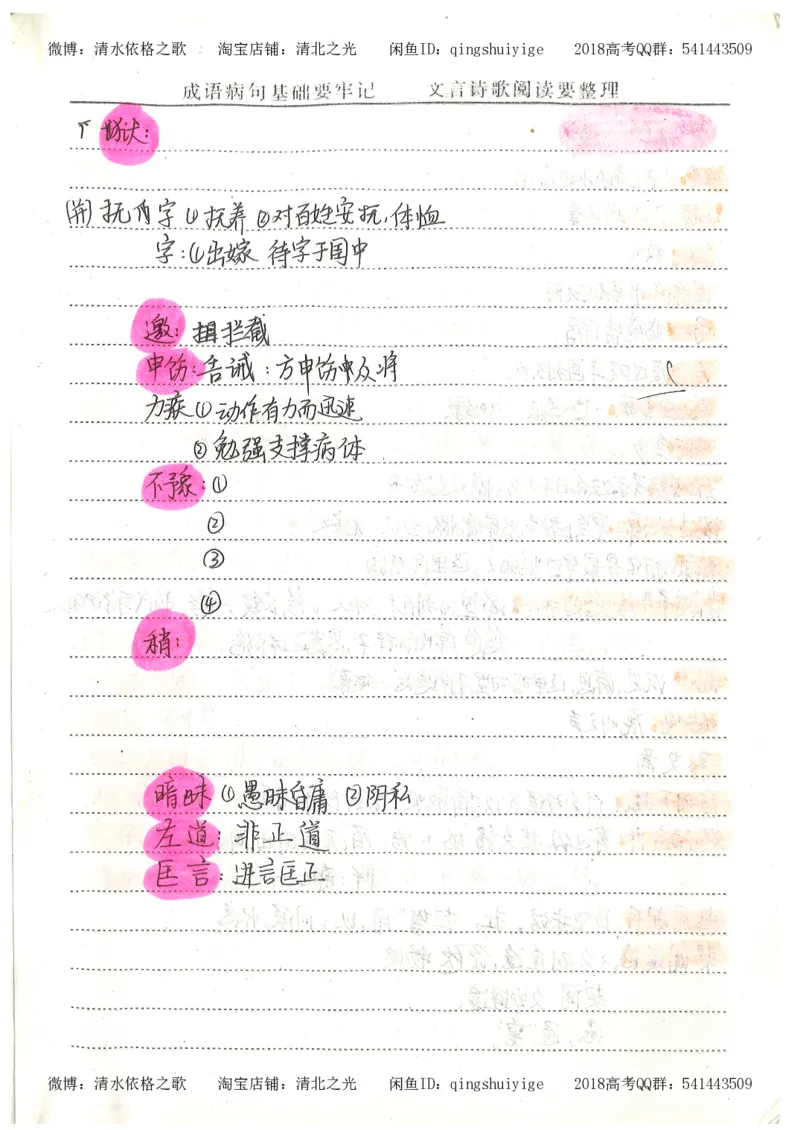 微博：清水依格之歌 淘宝店铺：清北之光 闲鱼ID：qingshuiyige 2018高考QQ群：541443509
成语病句基础要牢记 文言诗歌阅读要整理
抚内字①抚养②对百姓安抚，体恤
字：①出嫁 待字于国中
邀：拦截
申饬：告诫：方申饬中及将
力疾①动作有力而迅速
②勉强支撑病体
不豫：①
②
③
④
稍：
暗昧①愚昧昏庸 ②阴私
左道：非正道
匡言：进言匡正
微博：清水依格之歌 淘宝店铺：清北之光 闲鱼ID：qingshuiyige 2018高考QQ群：541443509